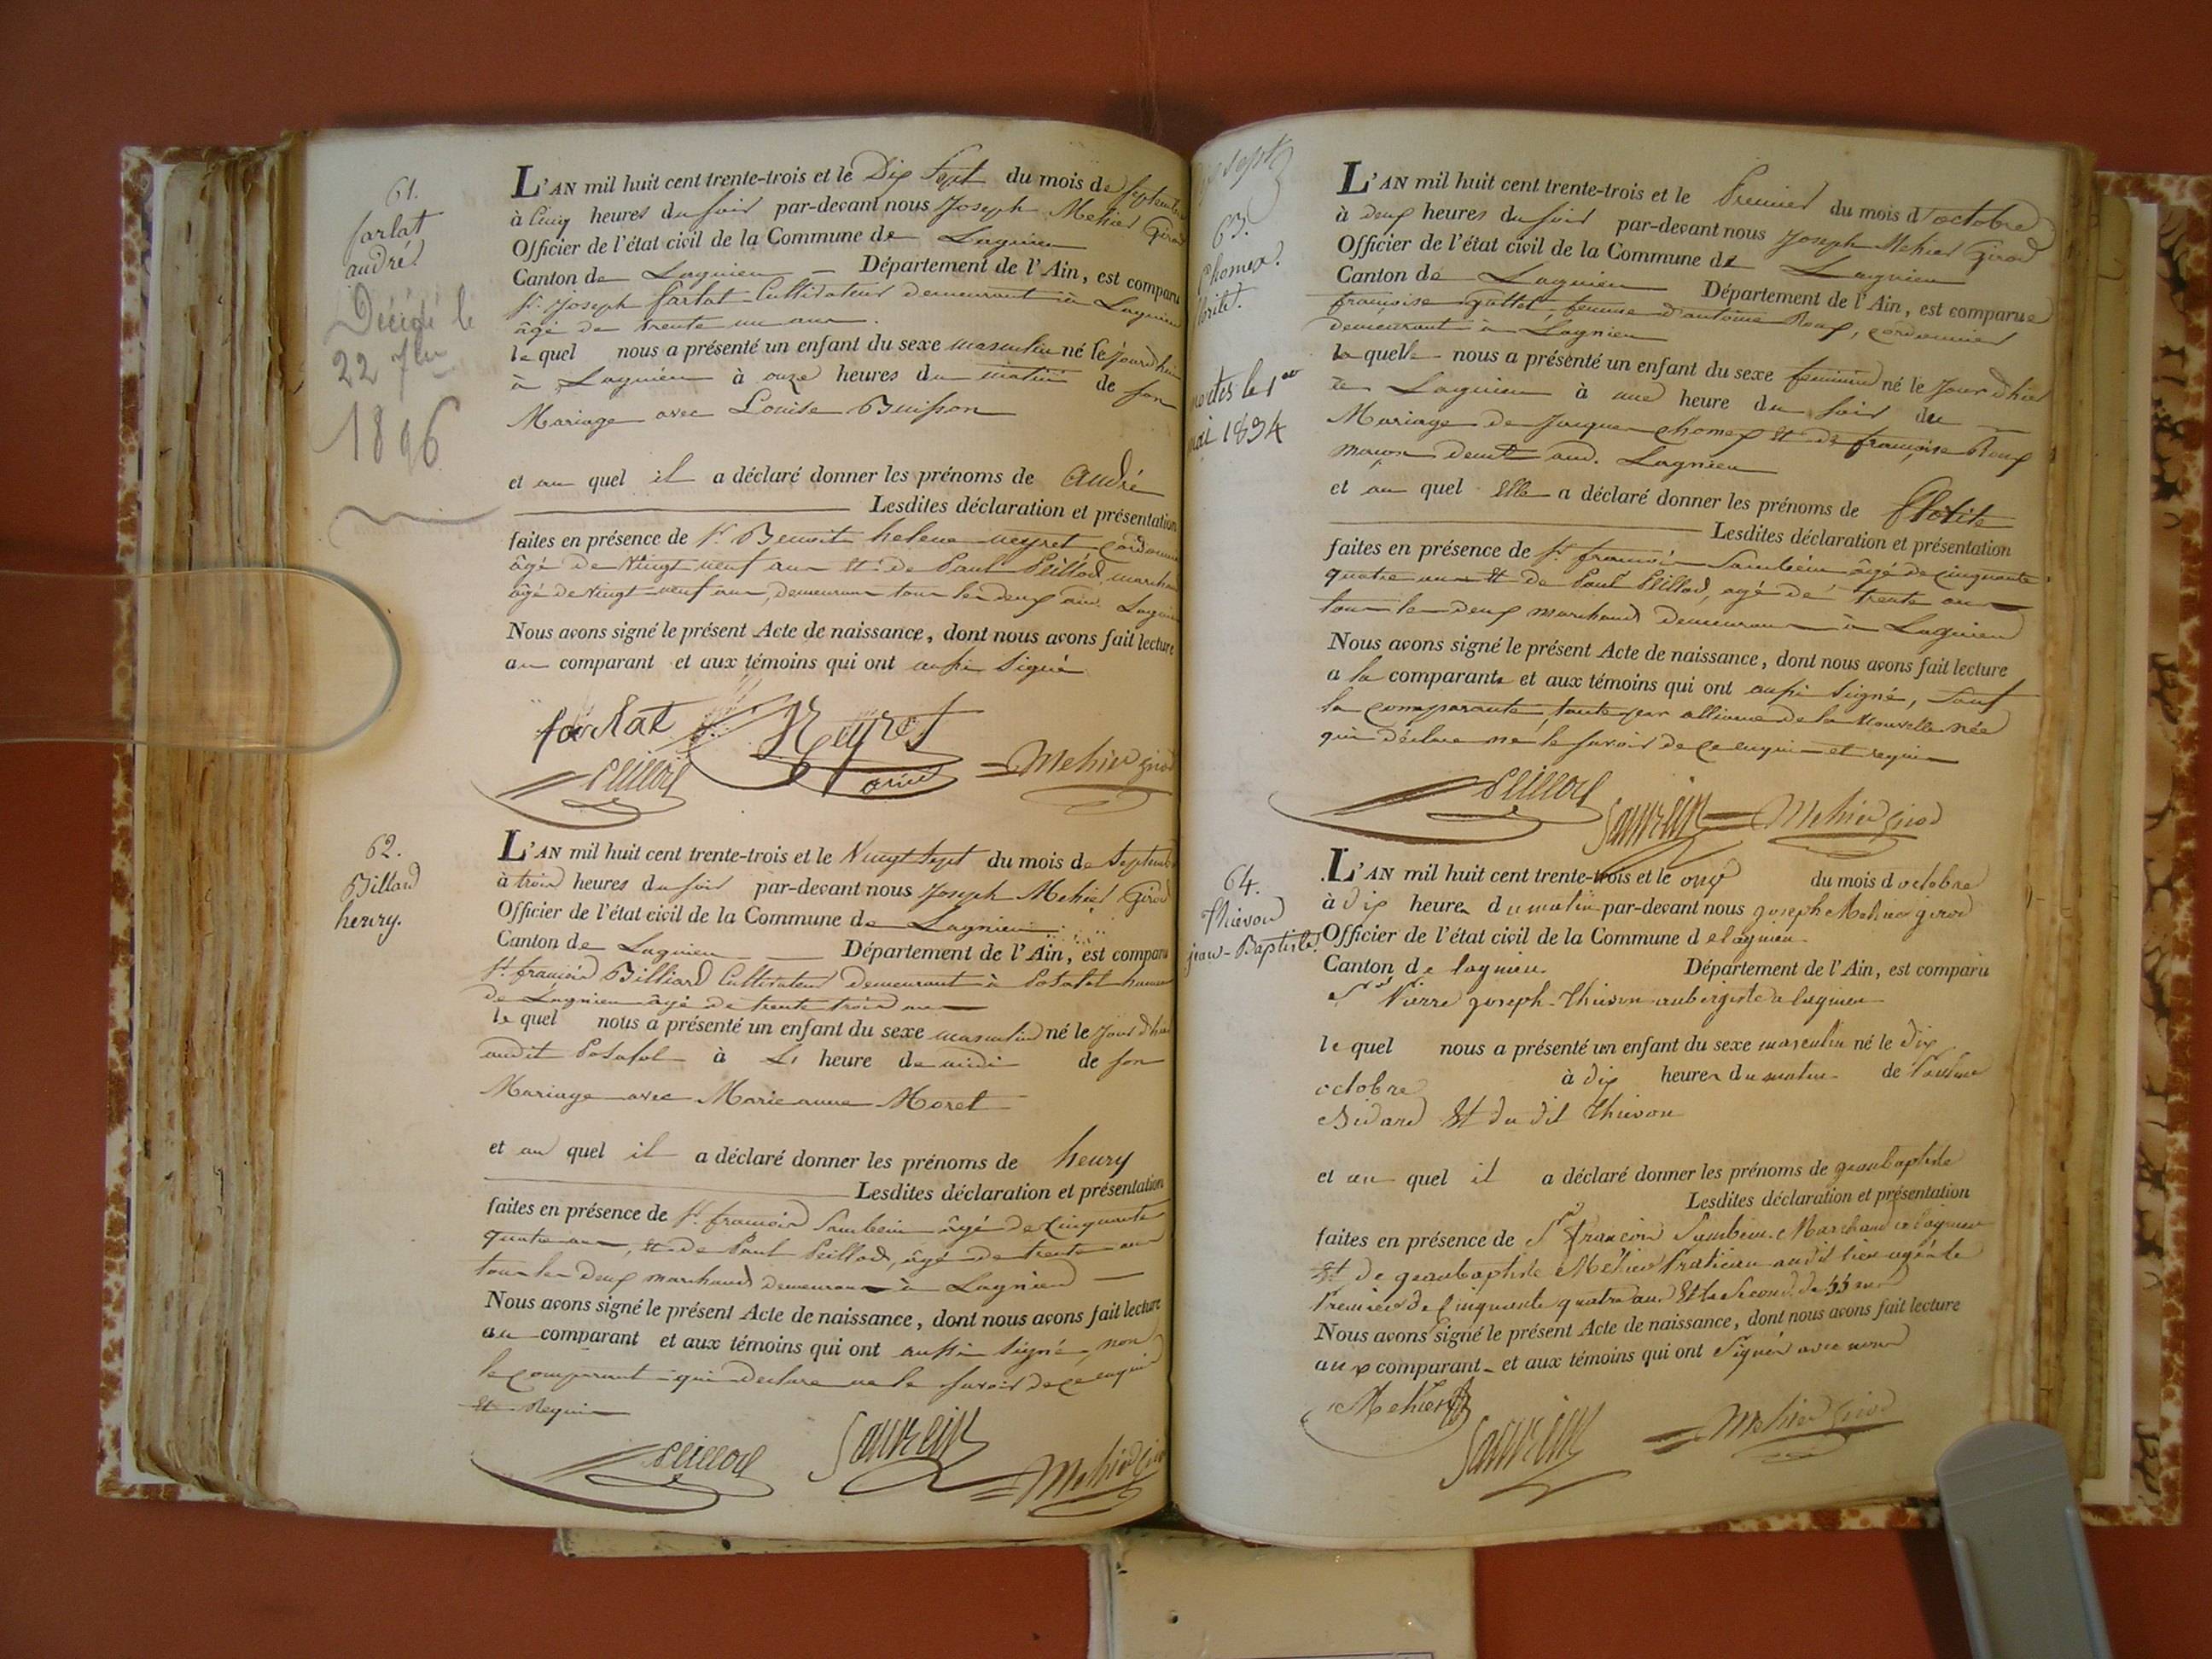 61.
farlat
andré.
Décédé le
22 7bre
1896
L'AN mil huit cent trente-trois et le Dix Sept du mois de Septembre
à Cinq heures du soir par-devant nous Joseph Mehier Girod
Officier de l'état civil de la Commune de Lagnieu
Canton de Lagnieu Département de l'Ain, est comparu
Sr. Joseph farlat Cultivateur demeurant à Lagnieu
âgé de trente un ans.
le quel nous a présenté un enfant du sexe masculin né le jourdhui
à Lagnieu à onze heures du matin de son
Mariage avec Louise Buisson
et au quel il a déclaré donner les prénoms de André
Lesdites déclaration et présentation
faites en présence de Sr. Benoit helene neyret Cordonnier
âgé de Vingt neuf ans et de Paul Peillod, marchand
âgé de Vingt neuf ans, demeurans tous les deux aud. Lagnieu
Nous avons signé le présent Acte de naissance, dont nous avons fait lecture
au comparant et aux témoins qui ont aussi Signé
farlat Neyret
Peillod Mehier Girod
62.
Billard
henry.
L'AN mil huit cent trente-trois et le Vingt Sept du mois de Septembre
à trois heures du soir par-devant nous Joseph Mehier Girod
Officier de l'état civil de la Commune de Lagnieu
Canton de Lagnieu Département de l'Ain, est comparu
Sr. françois Billiard Cultivateur demeurant à Posafol hameau
de Lagnieu âgé de trente trois ans
le quel nous a présenté un enfant du sexe masculin né le jour d'hier
audit Posafol à L' heure de midi de son
Mariage avec Marie anne Moret
et au quel il a déclaré donner les prénoms de henry
Lesdites déclaration et présentation
faites en présence de Sr. françois Sambein âgé de Cinquante
quatre ans, et de Paul Peillod, âgé de trente ans
tous les deux marchands demeurans à Lagnieu
Nous avons signé le présent Acte de naissance, dont nous avons fait lecture
au comparant et aux témoins qui ont aussi Signé, non
le comparant qui déclare ne le savoir de ce enquis
Et Requis
Peillod Sambein Mehier Girod
sept
63.
Chomex.
le 1er
mai 1894
L'AN mil huit cent trente-trois et le Premier du mois d'octobre
à deux heures du soir par-devant nous Joseph Mehier Girod
Officier de l'état civil de la Commune de Lagnieu
Canton de Lagnieu Département de l'Ain, est comparue
françoise Gottet, femme d'antoine Roux, cordonnier
demeurant à Lagnieu
la quelle nous a présenté un enfant du sexe feminin né le jour d'hier
à Lagnieu à une heure du soir du
Mariage de Jacques Chomex et de françoise Roux
maçon demt aud. Lagnieu
et au quel Elle a déclaré donner les prénoms de Florite
Lesdites déclaration et présentation
faites en présence de Sr. françois Sambein âgé de cinquante
quatre ans et de Paul Peillod, agé de trente ans
tous les deux marchands demeurans à Lagnieu
Nous avons signé le présent Acte de naissance, dont nous avons fait lecture
a la comparante et aux témoins qui ont aussi Signé, sauf
la comparante, tante par alliance de la Nouvelle née
qui déclare ne le savoir de ce enquis et requis
Peillod Sambein Mehier Girod
64.
Thievon
jean-Baptiste.
L'AN mil huit cent trente-trois et le onze du mois d octobre
à dix heures du matin par-devant nous joseph Mehier girod
Officier de l'état civil de la Commune d e lagnieu
Canton de lagnieu Département de l'Ain, est comparu
Sr Pierre joseph Thievon aubergiste a lagnieu
le quel nous a présenté un enfant du sexe masculin né le dix
octobre à dix heures du matin de Pauline
Bidard Et du dit Thievon
et au quel il a déclaré donner les prénoms de jeanbaptiste
Lesdites déclaration et présentation
faites en présence de Sr françois Sambein Marchand a lagnieu
Et de jeanbaptiste Mehier Praticien audit lieu agés le
Premier de Cinquante quatre ans Et le Second de 55 ans
Nous avons signé le présent Acte de naissance, dont nous avons fait lecture
aux comparant et aux témoins qui ont Signés avec nous
Mehier
Sambein Mehier Girod